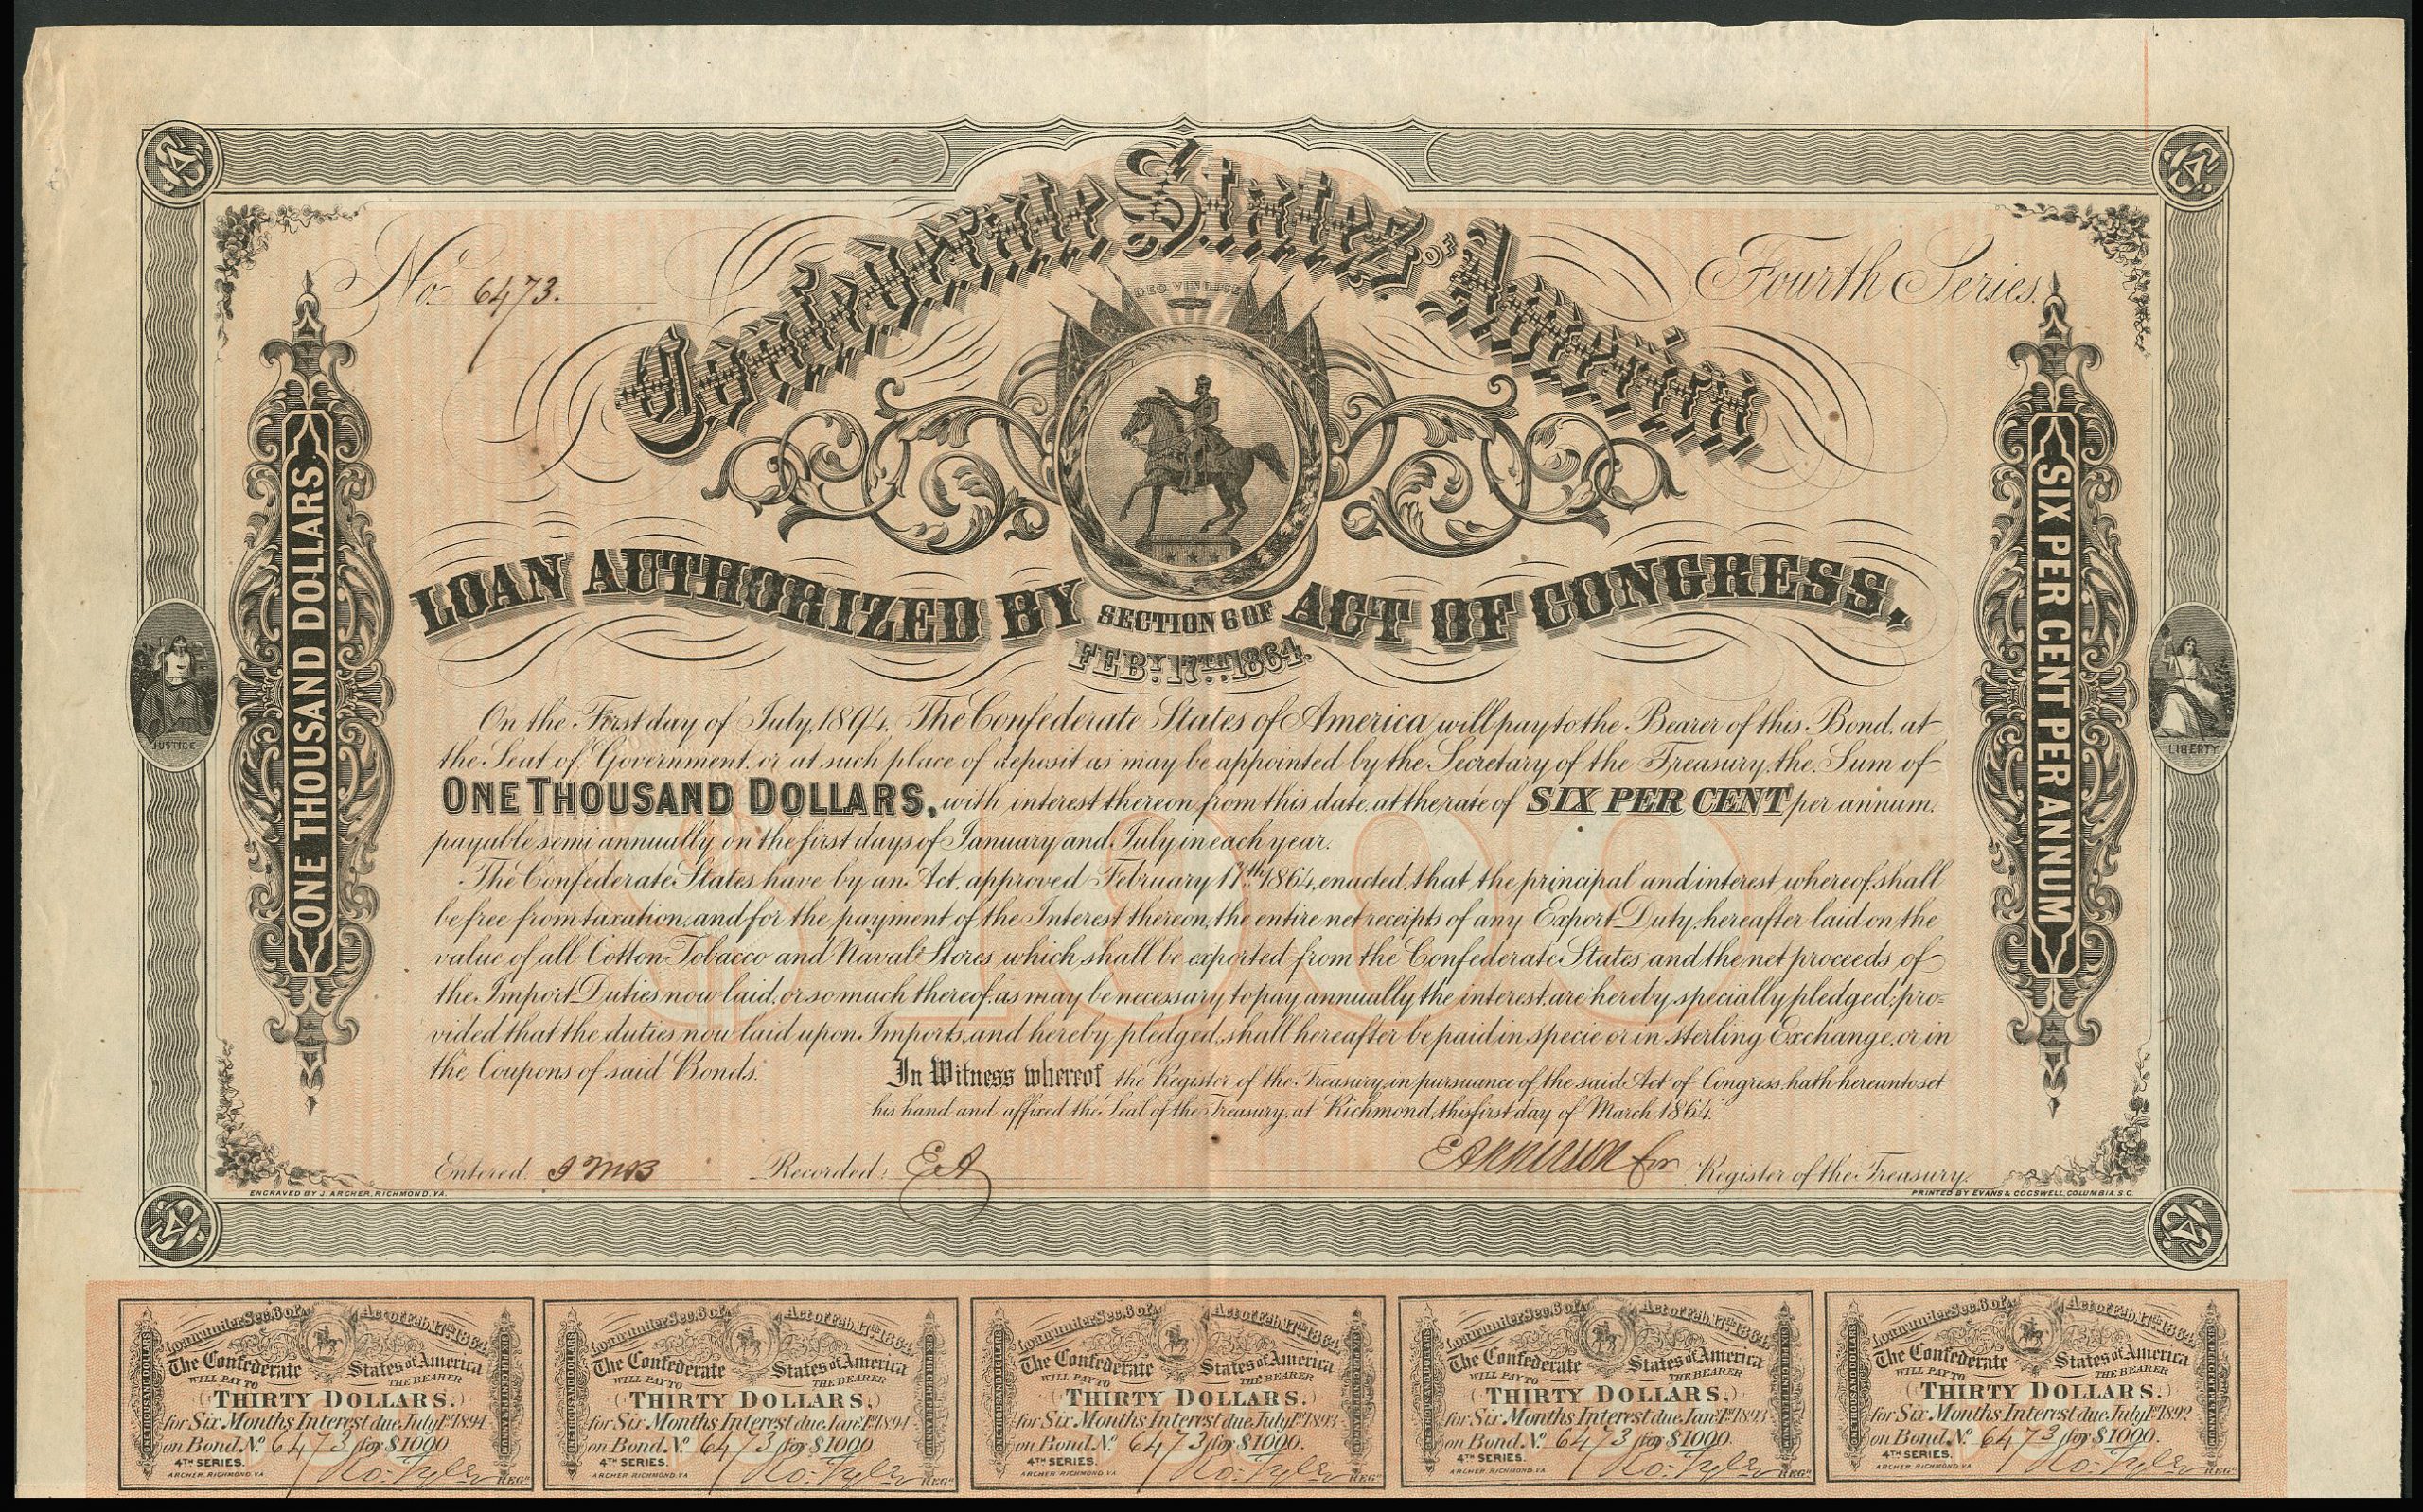 Confederate States OF America
No. 6473.
Fourth Series.
DEO VINDICE
LOAN AUTHORIZED BY SECTION 6 OF ACT OF CONGRESS,
FEBY. 17TH. 1864.
ONE THOUSAND DOLLARS
SIX PER CENT PER ANNUM
JUSTICE
LIBERTY
On the First day of July, 1894, The Confederate States of America, will pay to the Bearer of this Bond, at
the Seat of Government, or at such place of deposit as may be appointed by the Secretary of the Treasury, the Sum of
ONE THOUSAND DOLLARS, with interest thereon from this date, at the rate of SIX PER CENT per annum,
payable semi annually on the first days of January and July in each year.
The Confederate States have by an Act, approved February 17th. 1864, enacted, that the principal and interest whereof, shall
be free from taxation, and for the payment of the Interest thereon, the entire net receipts of any Export Duty, hereafter laid on the
value of all Cotton Tobacco and Naval Stores which shall be exported from the Confederate States and the net proceeds of
the Import Duties now laid, or so much thereof, as may be necessary to pay annually the interest, are hereby specially pledged; pro=
vided that the duties now laid upon Imports, and hereby pledged, shall hereafter be paid in specie or in sterling Exchange, or in
the Coupons of said Bonds.
In Witness whereof the Register of the Treasury, in pursuance of the said Act of Congress, hath hereunto set
his hand and affixed the Seal of the Treasury, at Richmond, this first day of March 1864.
Entered Recorded EA
for Register of the Treasury.
ENGRAVED BY J. ARCHER, RICHMOND. VA.
PRINTED BY EVANS & COGSWELL, COLUMBIA. S.C.
$1000
Loan under Sec. 6 of Act of Feb. 17th 1864
The Confederate States of America
WILL PAY TO THE BEARER
THIRTY DOLLARS.
for Six Months Interest due July 1st 1894
on Bond. No 6473 for $1000.
4TH SERIES.
Ro: Tyler REGR
ARCHER. RICHMOND. VA
ONE THOUSAND DOLLARS
SIX PER CENT PER ANNUM
Loan under Sec. 6 of Act of Feb. 17th 1864
The Confederate States of America
WILL PAY TO THE BEARER
THIRTY DOLLARS.
for Six Months Interest due Jan: 1st 1894
on Bond. No 6473 for $1000.
4TH SERIES.
Ro: Tyler REGR
ARCHER RICHMOND. VA
ONE THOUSAND DOLLARS
SIX PER CENT PER ANNUM
Loan under Sec. 6 of Act of Feb. 17th 1864
The Confederate States of America
WILL PAY TO THE BEARER
THIRTY DOLLARS.
for Six Months Interest due July 1st 1893
on Bond. No 6473 for $1000.
4TH SERIES.
Ro: Tyler REGR
ARCHER RICHMOND. VA
ONE THOUSAND DOLLARS
SIX PER CENT PER ANNUM
Loan under Sec. 6 of Act of Feb. 17th 1864
The Confederate States of America
WILL PAY TO THE BEARER
THIRTY DOLLARS.
for Six Months Interest due Jan: 1st 1893
on Bond. No 6473 for $1000.
4TH SERIES.
Ro: Tyler REGR
ARCHER RICHMOND. VA
ONE THOUSAND DOLLARS
SIX PER CENT PER ANNUM
Loan under Sec. 6 of Act of Feb. 17th 1864
The Confederate States of America
WILL PAY TO THE BEARER
THIRTY DOLLARS.
for Six Months Interest due July 1st 1892
on Bond. No 6473 for $1000.
4TH SERIES.
Ro: Tyler REGR
ARCHER RICHMOND. VA
ONE THOUSAND DOLLARS
SIX PER CENT PER ANNUM